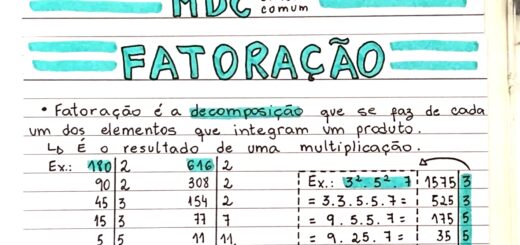 MDC comum
FATORAÇÃO
• Fatoração é a decomposição que se faz de cada
um dos elementos que integram um produto.
↳ É o resultado de uma multiplicação.
Ex.: 180 | 2 616 | 2 Ex.: 3². 5². 7 1575 | 3
90 | 2 308 | 2 = 3.3.5.5.7 = 525 | 3
45 | 3 154 | 2 = 9.5.5.7 = 175 | 5
15 | 3 77 | 7 = 9.25.7 = 35 | 5
5 | 5 11 | 11